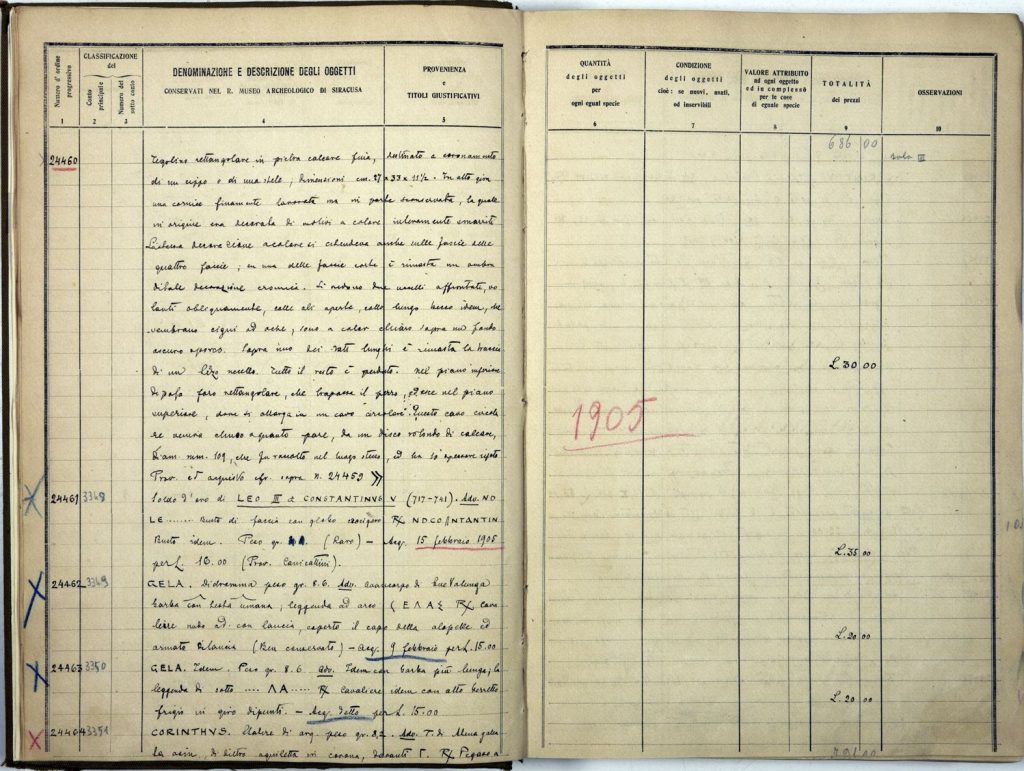 Numero d'ordine progressivo
CLASSIFICAZIONE
del
Conto principale
Numero del sotto conto
DENOMINAZIONE E DESCRIZIONE DEGLI OGGETTI
CONSERVATI NEL R. MUSEO ARCHEOLOGICO DI SIRACUSA
PROVENIENZA
e
TITOLI GIUSTIFICATIVI
1 2 3 4 5
24460 Tegolino rettangolare in pietra calcare fina, destinato a coronamento
di un cippo o di una stele; dimensioni cm. 27 x 33 x 11½. In alto gira
una cornice finamente lavorata ma in parte sconservata, la quale
in origine era decorata di motivi a colore interamente smarriti
La stessa decorazione a colore si estendeva anche sulle fascie delle
quattro faccie; in una delle fascie corte è rimasta un
decorazione. Si vedono due uccelli affrontati, vo
lanti obliquamente, colle ali aperte, collo lungo becco idem, che
sembrano cigni od oche, sono a color chiaro sopra un fondo
oscuro. Sopra uno dei lati lunghi è rimasta la traccia
di un terzo uccello. Tutto il resto è perduto. Nel piano inferiore
foro rettangolare, che trapassa il pezzo, esce nel piano
superiore, dove si allarga in un cavo circolare. Questo cavo circola
re veniva chiuso a quanto pare, da un disco rotondo di calcare,
diam. mm. 109, che fu raccolto nel luogo stesso, ed ha lo spessore
Prov. ed acquisto cfr. sopra n. 24459
24461 3348 Soldo d'oro di LEO III & CONSTANTINVS V (717-741). Adv. ND
LE........ Busto di faccia con globo crucigero R/ NDCO//NTANTIN
Busto idem. Peso gr. (Raro) — Acq. 15 febbraio 1905
per L. 18.00 (Prov. Canicattini).
24462 3349 GELA. Didramma peso gr. 8.6. Adv. Avancorpo di
barba con testa umana; leggenda ad arco (ΕΛΑΣ R/ Cava
liere nudo ad. con lancia, coperto il capo della alopekè ed
armato di lancia (Ben conservato) — Acq. 9 febbraio per L. 15.00
24463 3350 GELA. Idem. Peso gr. 8.6. Adv. Idem con barba più lunga; la
leggenda di sotto .... ΛΑ ..... R/ Cavaliere idem con alto berretto
frigio in giro dipunti. — Acq. detto per L. 15.00
24464 3351 CORINTHVS. Statere di arg. peso gr. 8,2. Adv. T. di Atena gala
la asin, di dietro aquiletta in corona, davanti Γ. R/ Pegaso a
QUANTITÀ
degli oggetti
per
ogni egual specie
CONDIZIONE
degli oggetti
cioè: se nuovi, usati,
od inservibili
VALORE ATTRIBUITO
ad ogni oggetto
ed in complesso
per le cose
di eguale specie
TOTALITÀ
dei prezzi
OSSERVAZIONI
6 7 8 9 10
686 00
sala III
L. 30 00
1905
L. 35 00
L. 20 00
L. 20 00
791 00